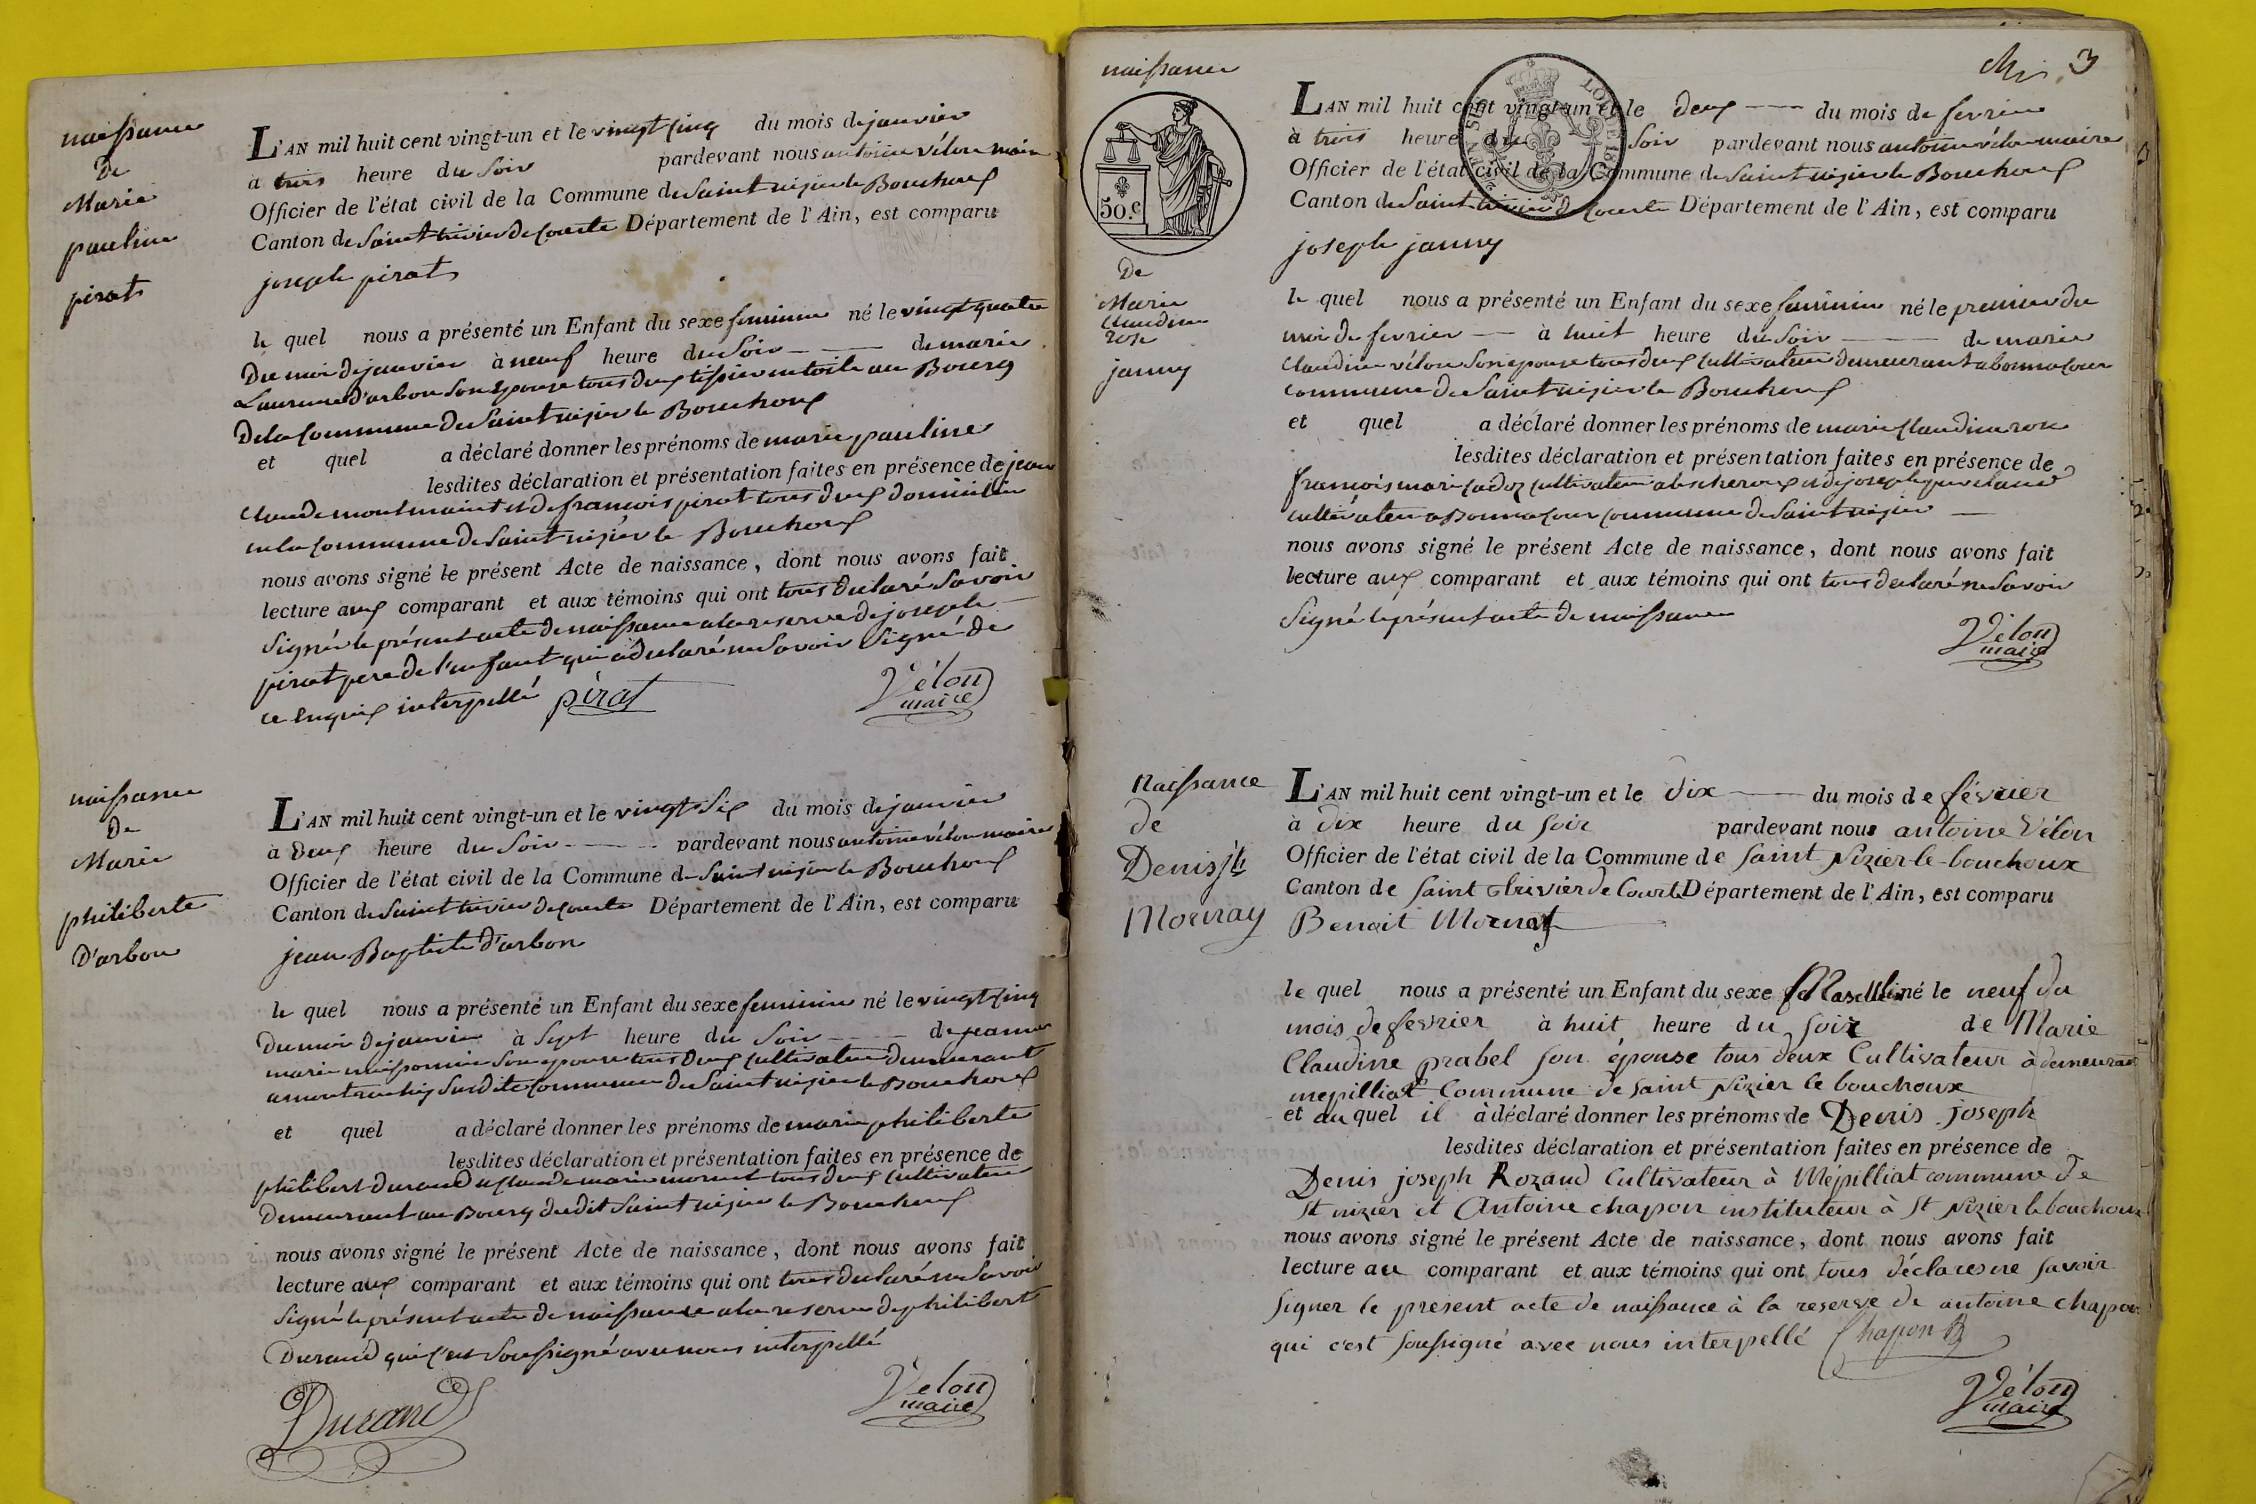 naissance
de
Marie
pauline
pirat
L'AN mil huit cent vingt-un et le vingt cinq du mois de janvier
à trois heure du soir pardevant nous antoine vélon maire
Officier de l'état civil de la Commune de Saint nizier le Bouchoux
Canton de Saint trivier de Courte Département de l'Ain, est comparu
joseph pirat
le quel nous a présenté un Enfant du sexe feminin né le vingt quatre
du moi de janvier à neuf heure du Soir de marie
Laurence d'arbon Son Epouse tous deux tissier en toile au Bourg
De la Commune de Saint nizier le Bouchoux
et quel a déclaré donner les prénoms de marie pauline
lesdites déclaration et présentation faites en présence de jean
Claude et de francois pirat tous deux domicilié
en la Commune de Saint nizier le Bouchoux
nous avons signé le présent Acte de naissance, dont nous avons fait
lecture aux comparant et aux témoins qui ont tous declaré Savoir
Signé le présent acte de naissance a la reserve de joseph
pirat pere de l'enfant qui a declaré ne Savoir Signé de
ce enquis interpellé pirat
Vélon
maire
naissance
De
Marie
philiberte
D'arbon
L'AN mil huit cent vingt-un et le vingt Six du mois de janvier
à Deux heure du Soir pardevant nous antoine vélon maire
Officier de l'état civil de la Commune de Saint nizier le Bouchoux
Canton de Saint trivier de Courte Département de l'Ain, est comparu
jean Baptiste D'arbon
le quel nous a présenté un Enfant du sexe feminin né le vingt cinq
du moi de janvier à Sept heure du Soir de jeanne
marie Son epouse tous Deux Cultivateur Demeurant
a Susdite Commune de Saint nizier le Bouchoux
et quel a déclaré donner les prénoms de marie philiberte
lesdites déclaration et présentation faites en présence de
philibert durand et Claude marie tous deux Cultivateur
Demeurant au Bourg dudit Saint nizier le Bouchoux
nous avons signé le présent Acte de naissance, dont nous avons fait
lecture aux comparant et aux témoins qui ont tous declaré ne Savoir
Signé le présent acte de naissance a la reserve de philibert
Durand qui c'est Soussigné avec nous interpellé
Durand
Vélon
maire
3
naissance
50.c
De
Marie
Claudine
rose
janny
L'AN mil huit cent vingt-un et le deux du mois de fevrier
à trois heure du Soir pardevant nous antoine vélon maire
Officier de l'état civil de la Commune de Saint nizier le Bouchoux
Canton de Saint trivier de Courte Département de l'Ain, est comparu
joseph janny
le quel nous a présenté un Enfant du sexe feminin né le premier du
moi de fevrier à huit heure du Soir de marie
Claudine vélon Son epouse tous deux Cultivateur demeurant a bonnacour
Commune de Saint nizier le Bouchoux
et quel a déclaré donner les prénoms de marie Claudine rose
lesdites déclaration et présentation faites en présence de
francois marie cultivateur et de joseph
cultivateur a Bonnacour Commune de Saint nizier
nous avons signé le présent Acte de naissance, dont nous avons fait
lecture aux comparant et aux témoins qui ont tous declaré ne Savoir
Signé le présent acte de naissance
Vélon
maire
Naissance
de
Denis jh
Mornay
L'AN mil huit cent vingt-un et le Dix du mois de février
à Dix heure du soir pardevant nous antoine Vélon
Officier de l'état civil de la Commune de saint Nizier-le-bouchoux
Canton de saint trivier de Courte Département de l'Ain, est comparu
Benoit Mornay
le quel nous a présenté un Enfant du sexe Masculin né le neuf du
mois de fevrier à huit heure du soir de Marie
Claudine prabel son épouse tous deux Cultivateur à demeurant
mepilliat Commune de saint Nizier le bouchoux
et du quel il à déclaré donner les prénoms de Denis joseph
lesdites déclaration et présentation faites en présence de
Denis joseph Rozand Cultivateur à Mépilliat commune de
St nizier et Antoine chapon instituteur à St Nizier le bouchoux
nous avons signé le présent Acte de naissance, dont nous avons fait
lecture au comparant et aux témoins qui ont tous déclares ne savoir
signer le present acte de naissance à la reserve de antoine chapon
qui c'est soussigné avec nous interpellé Chapon
Vélon
maire